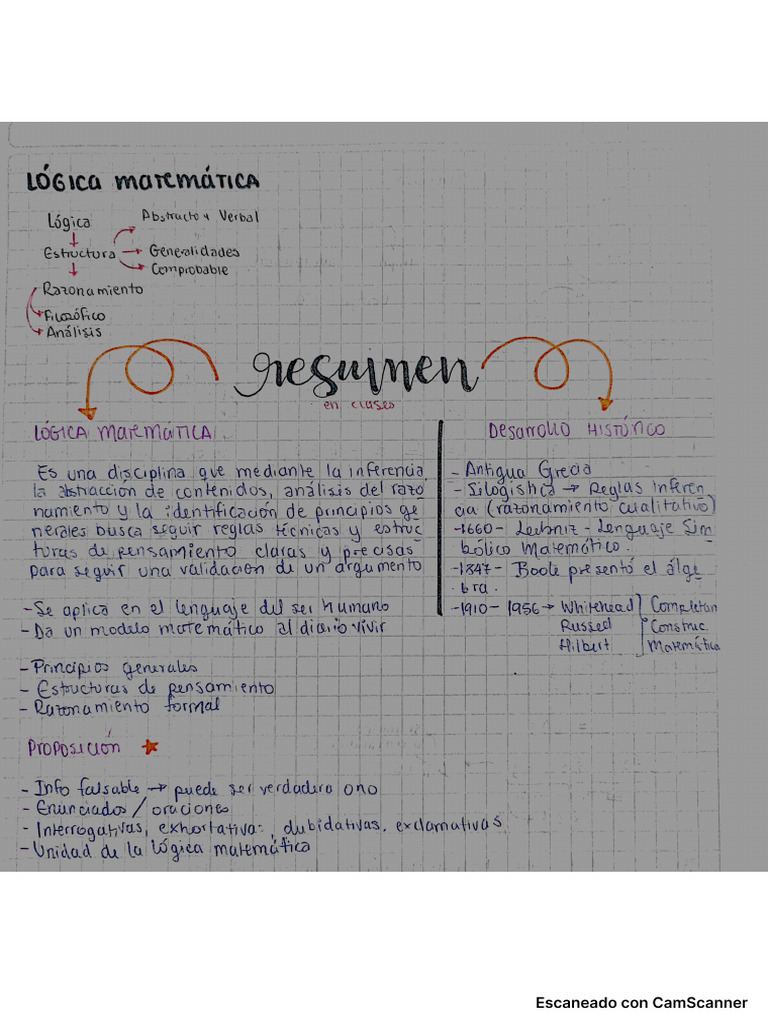 LÓGICA MATEMÁTICA
Lógica
Abstracto y Verbal
Estructura
Generalidades
Comprobable
Razonamiento
Filosófico
Análisis
resumen
en clases
LÓGICA MATEMÁTICA
Es una disciplina que mediante la inferencia,
la abstracción de contenidos, análisis del razo
namiento y la identificación de principios ge
nerales busca seguir reglas técnicas y estruc
turas de pensamiento claras y precisas
para seguir una validación de un argumento
- Se aplica en el lenguaje del ser humano
- Da un modelo matemático al diario vivir
- Principios generales
- Estructuras de pensamiento
- Razonamiento formal
Proposición
- Info falsable → puede ser verdadera o no
- Enunciados / oraciones
- Interrogativas, exhortativa:, dubidativas, exclamativas
- Unidad de la lógica matemática
Desarrollo Histórico
- Antigua Grecia
- Silogística → Reglas inferen
cia (razonamiento cualitativo)
-1660- Leibniz - Lenguaje Sim
bólico Matemático.
-1847- Boole presentó el álge
bra.
-1910 - 1956 → Whitehead Completan
Russed Construc
Hilbert Matemática
Escaneado con CamScanner